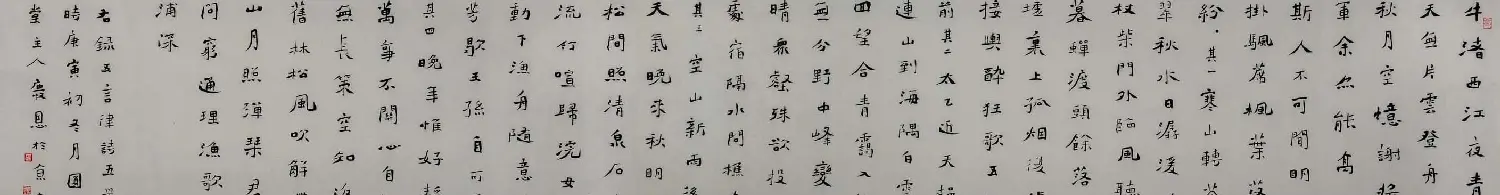 牛渚西江夜青
天無片雲登舟
秋月空憶謝將
軍余亦能高
斯人不可聞明
掛颿蓆楓葉落
紛、其一寒山轉蒼
翠秋水日潺湲
杖柴門外臨風聽
暮蟬渡頭餘落
墟裏上孤烟復
接輿醉狂歌五
前其二太乙近天都
連山到海隅白雲
四望合青靄入
無分野中峰變
晴衆壑殊欲投
處宿隔水問樵
其三空山新雨後
天氣晚來秋明
松間照清泉石
流竹喧歸浣女
動下漁舟隨意
芳歇王孫自可
其四晚年惟好靜
萬事不關心自
無長策空知返
舊林松風吹解
山月照彈琴君
問窮通理漁歌
浦深
右録五言律詩五首
時庚寅初冬月圓
堂主人恩於